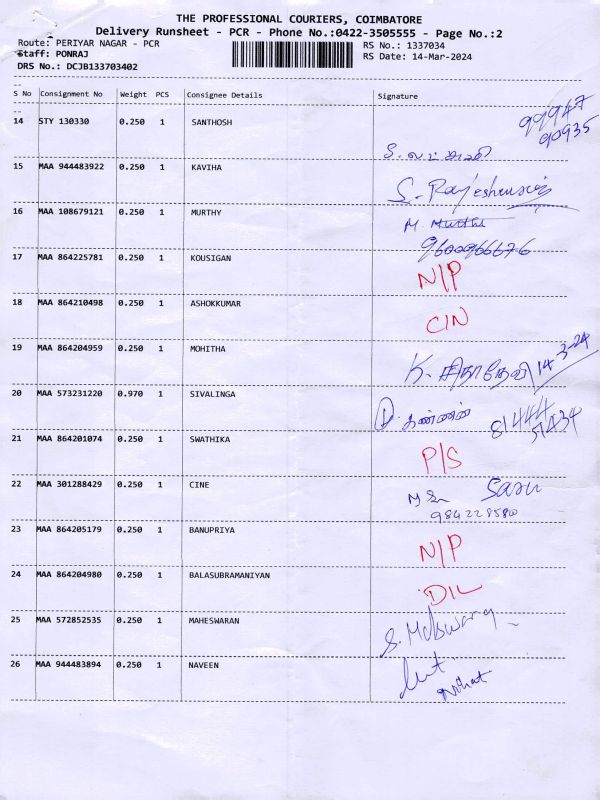 THE PROFESSIONAL COURIERS, COIMBATORE
Delivery Runsheet - PCR - Phone No.:0422-3505555 - Page No.:2
Route: PERIYAR NAGAR - PCR RS No.: 1337034
Staff: PONRAJ RS Date: 14-Mar-2024
DRS No.: DCJB133703402
S No Consignment No Weight PCS Consignee Details Signature
14 STY 130330 0.250 1 SANTHOSH 99947
90935
15 MAA 944483922 0.250 1 KAVIHA
16 MAA 108679121 0.250 1 MURTHY M. Murthi
9600966676
17 MAA 864225781 0.250 1 KOUSIGAN N/P
18 MAA 864210498 0.250 1 ASHOKKUMAR C/N
19 MAA 864204959 0.250 1 MOHITHA 14-3-24
20 MAA 573231220 0.970 1 SIVALINGA D. கண்ணன் 81444
51434
21 MAA 864201074 0.250 1 SWATHIKA P/S
22 MAA 301288429 0.250 1 CINE
23 MAA 864205179 0.250 1 BANUPRIYA N/P
24 MAA 864204980 0.250 1 BALASUBRAMANIYAN D/L
25 MAA 572852535 0.250 1 MAHESWARAN
26 MAA 944483894 0.250 1 NAVEEN